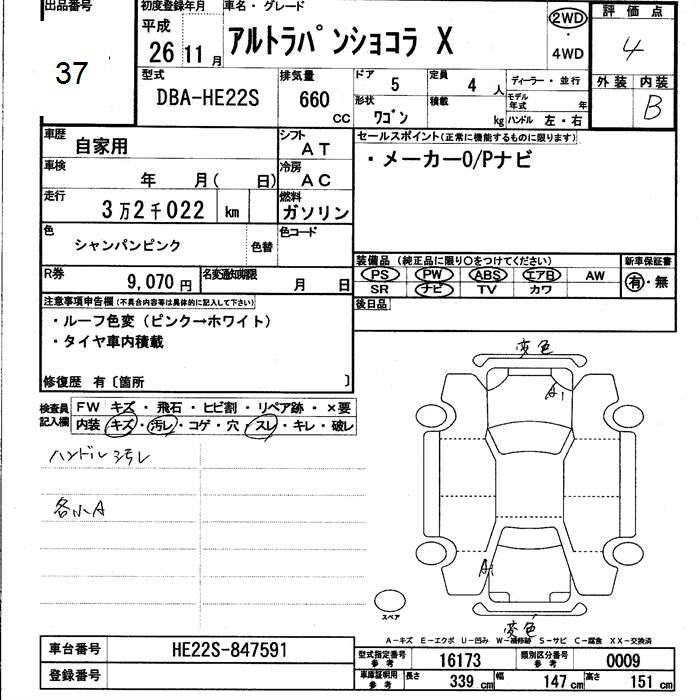 出品番号
37
初度登録年月
平成
26 11 月
車名・グレード
アルトラパンショコラ X
2WD
・
4WD
評価点
4
型式
DBA-HE22S
排気量
660 CC
ドア
5
定員
4 人
形状
ワゴン
積載
kg
ディーラー・並行
モデル年式 年
ハンドル 左・右
外装 内装
B
車歴
自家用
シフト
AT
車検
年 月( 日)
冷房
AC
走行
3万2千022 km
燃料
ガソリン
色
シャンパンピンク
色替
色コード
R券
9,070 円
名変通知期限
月 日
セールスポイント(正常に機能するものに限ります)
・メーカーO/Pナビ
装備品 (純正品に限り○をつけてください)
PS PW ABS エアB AW
SR ナビ TV カワ
新車保証書
有・無
後日品
注意事項申告欄(不具合内容等は具体的に記入して下さい)
・ルーフ色変(ピンク→ホワイト)
・タイヤ車内積載
修復歴 有〔箇所 〕
検査員記入欄
FW キズ・飛石・ヒビ割・リペア跡・×要
内装 キズ・汚レ・コゲ・穴・スレ・キレ・破レ
ハンドル汚レ
各小A
変色
A1
A1
スペア
変色
A-キズ E-エクボ U-凹み W-補修跡 S-サビ C-腐食 XX-交換済
車台番号
HE22S-847591
登録番号
型式指定番号 参考
16173
類別区分番号 参考
0009
車庫証明用 参考
長さ 339 cm
幅 147 cm
高さ 151 cm